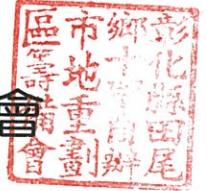 彰化縣田尾
鄉十自辦
市地重劃
區籌備會
會